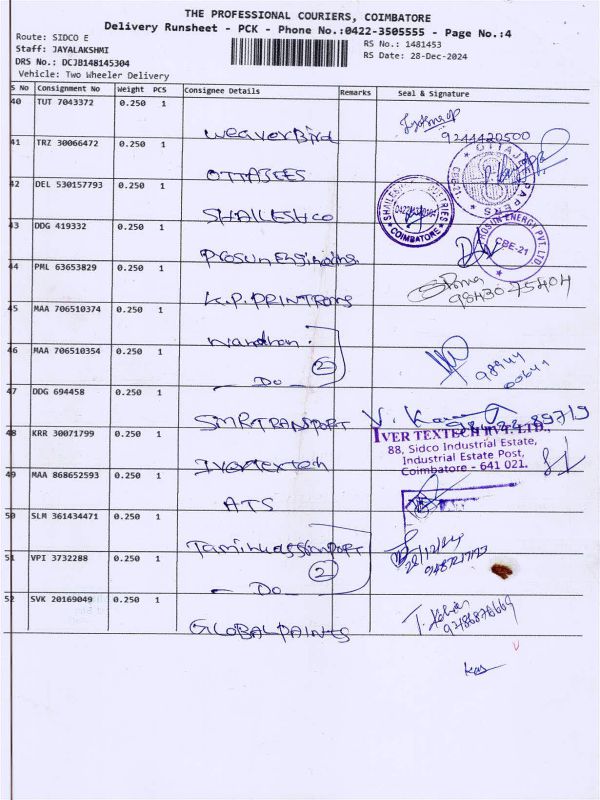 THE PROFESSIONAL COURIERS, COIMBATORE
Delivery Runsheet - PCK - Phone No.:0422-3505555 - Page No.:4
Route: SIDCO E
Staff: JAYALAKSHMI
DRS No.: DCJB148145304
Vehicle: Two Wheeler Delivery
RS No.: 1481453
RS Date: 28-Dec-2024
S No Consignment No Weight PCS Consignee Details Remarks Seal & Signature
40 TUT 7043372 0.250 1
WeaverBird
9244420500
41 TRZ 30066472 0.250 1
OTTAJEES
OTTAJ PAPERS
42 DEL 530157793 0.250 1
SHAILESH CO
COIMBATORE
43 DDG 419332 0.250 1
Prosun Engineering
PROSUN ENERGY PVT. LTD
CBE-21
44 PML 63653829 0.250 1
K.P. PRINTRONS
98430-75404
45 MAA 706510374 0.250 1
Nandhan.
46 MAA 706510354 0.250 1
2
Do
98944
00641
47 DDG 694458 0.250 1
SMRTRANSPORT
48 KRR 30071799 0.250 1
IVER TEXTECH PVT. LTD.,
88, Sidco Industrial Estate,
Industrial Estate Post,
Coimbatore - 641 021.
Ivertextech
49 MAA 868652593 0.250 1
ATS
50 SLM 361434471 0.250 1
28/12/24
51 VPI 3732288 0.250 1
2
Do
52 SVK 20169049 0.250 1
GLOBALPAINTS